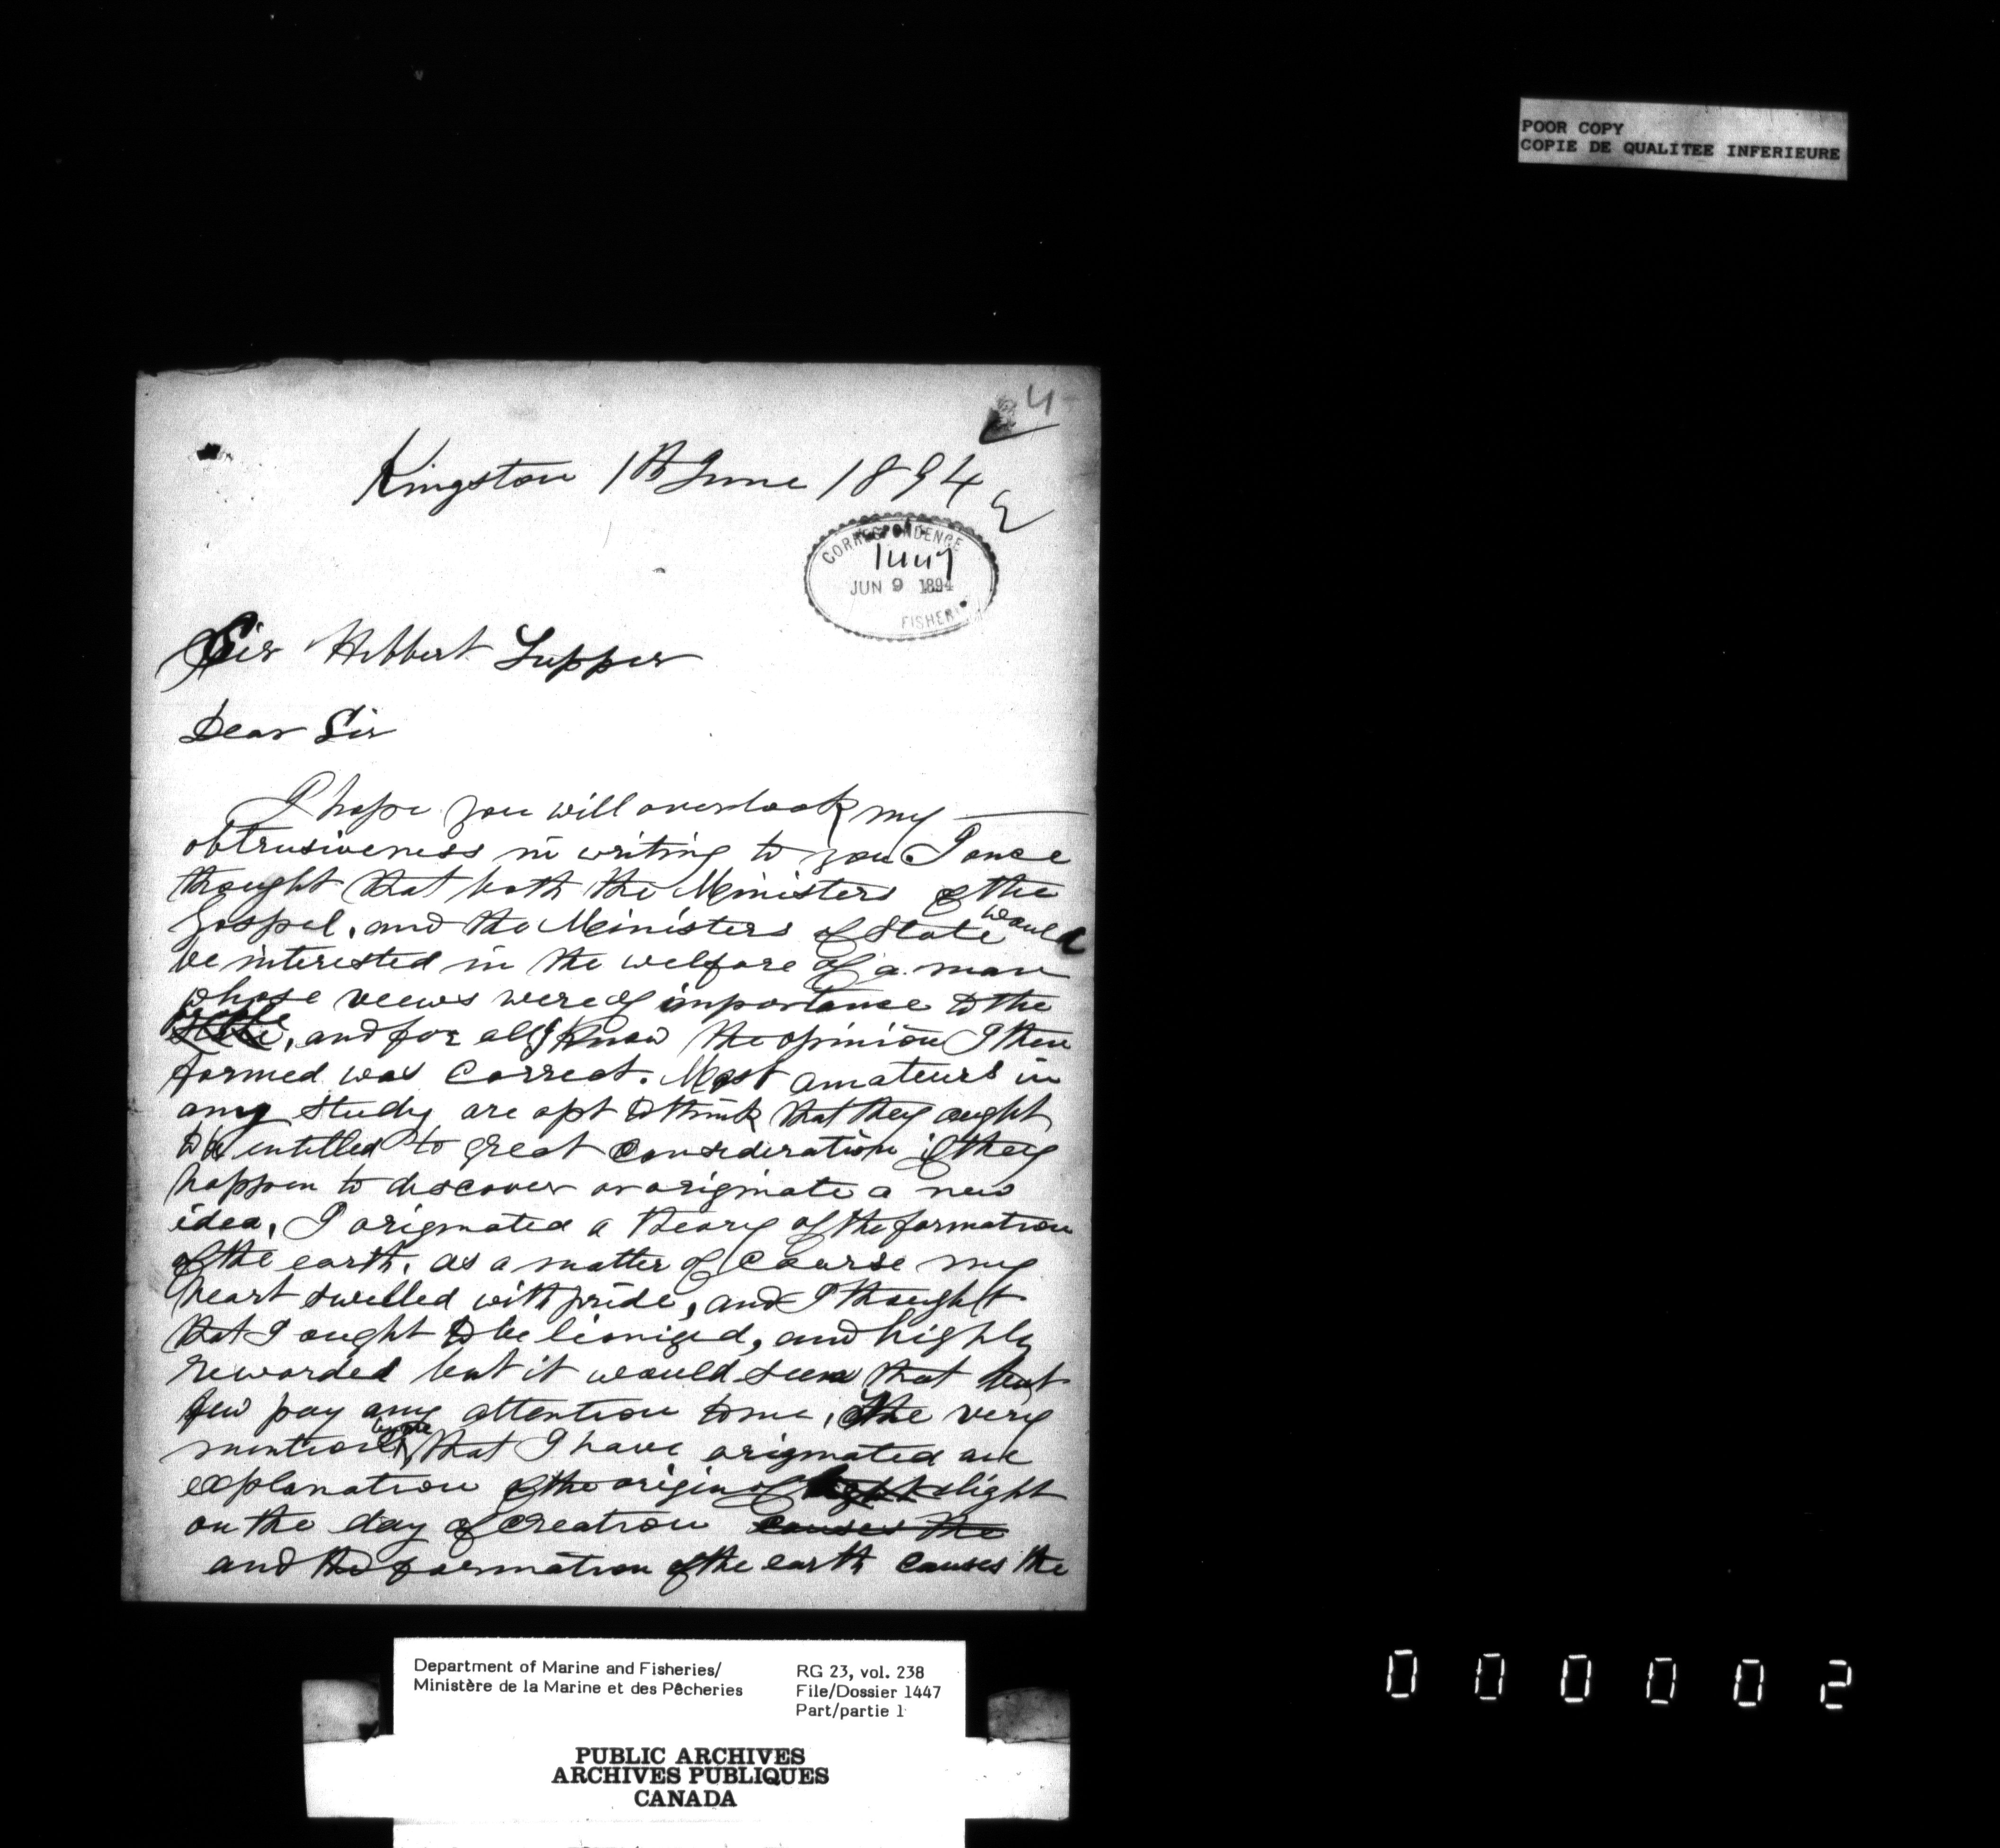 POOR COPY
COPIE DE QUALITEE INFERIEURE
4
Kingston 1th June 1894
CORRESPONDENCE
1447
JUN 9 1894
FISHERI
Sir Hibbert Tupper
Dear Sir
I hope you will overlook my
obtrusiveness in writing to you I once
thought that both the Ministers of the
Gospel, and the Ministers of State would
be interested in the welfare of a man
whose veews were of importance to the
people, and for all I know the opinion I then
formed was correct. Most amateurs in
any study are apt to think that they ought
to be entitled to great consideration if they
happen to discover or originate a new
idea, I originated a theory of the formation
of the earth, as a matter of course my
heart swelled with pride, and I thought
that I ought to be lionized, and highly
rewarded but it would seem that but
few pay any attention to me, The very
mention by me that I have originated an
explanation of the origin of light
on the day of creation causes the
and the formation of the earth causes the
Department of Marine and Fisheries/
Ministère de la Marine et des Pêcheries
RG 23, vol. 238
File/Dossier 1447
Part/partie 1
PUBLIC ARCHIVES
ARCHIVES PUBLIQUES
CANADA
000002